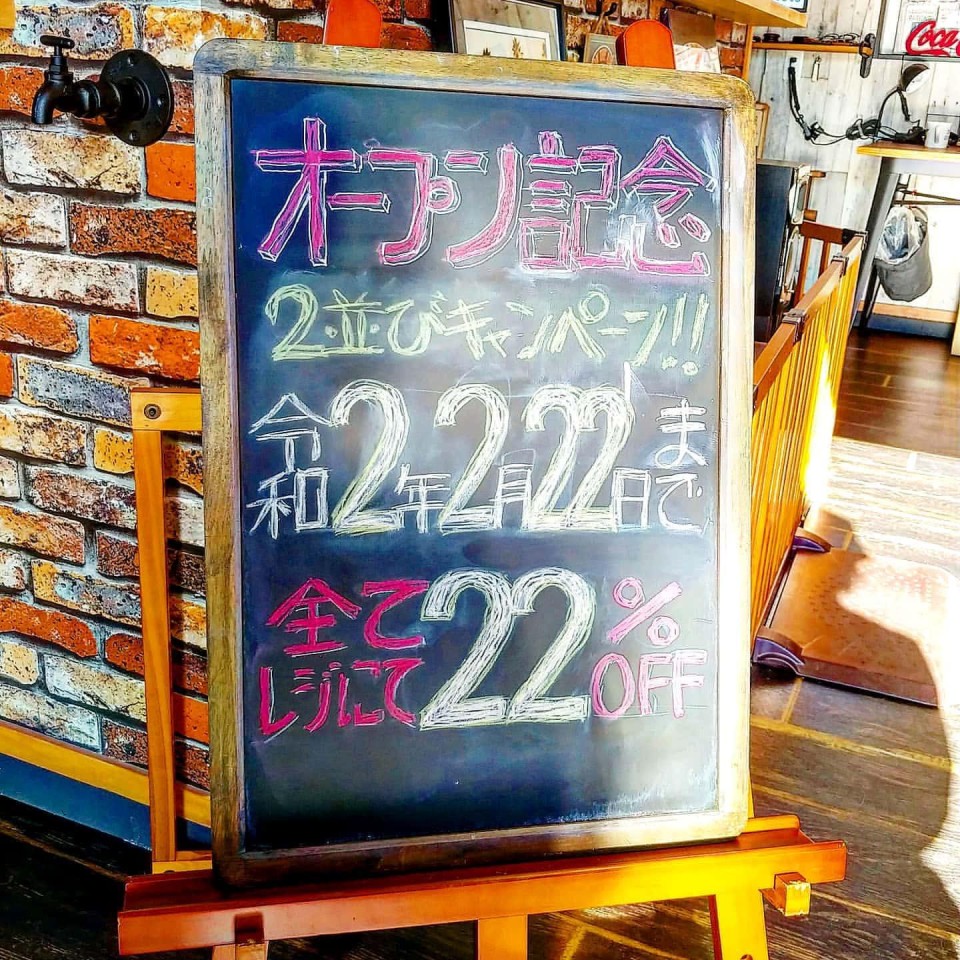 オープン記念
2・並・びキャンペーン!!
令和2年2月22日まで
全てレジにて22%OFF
Coca